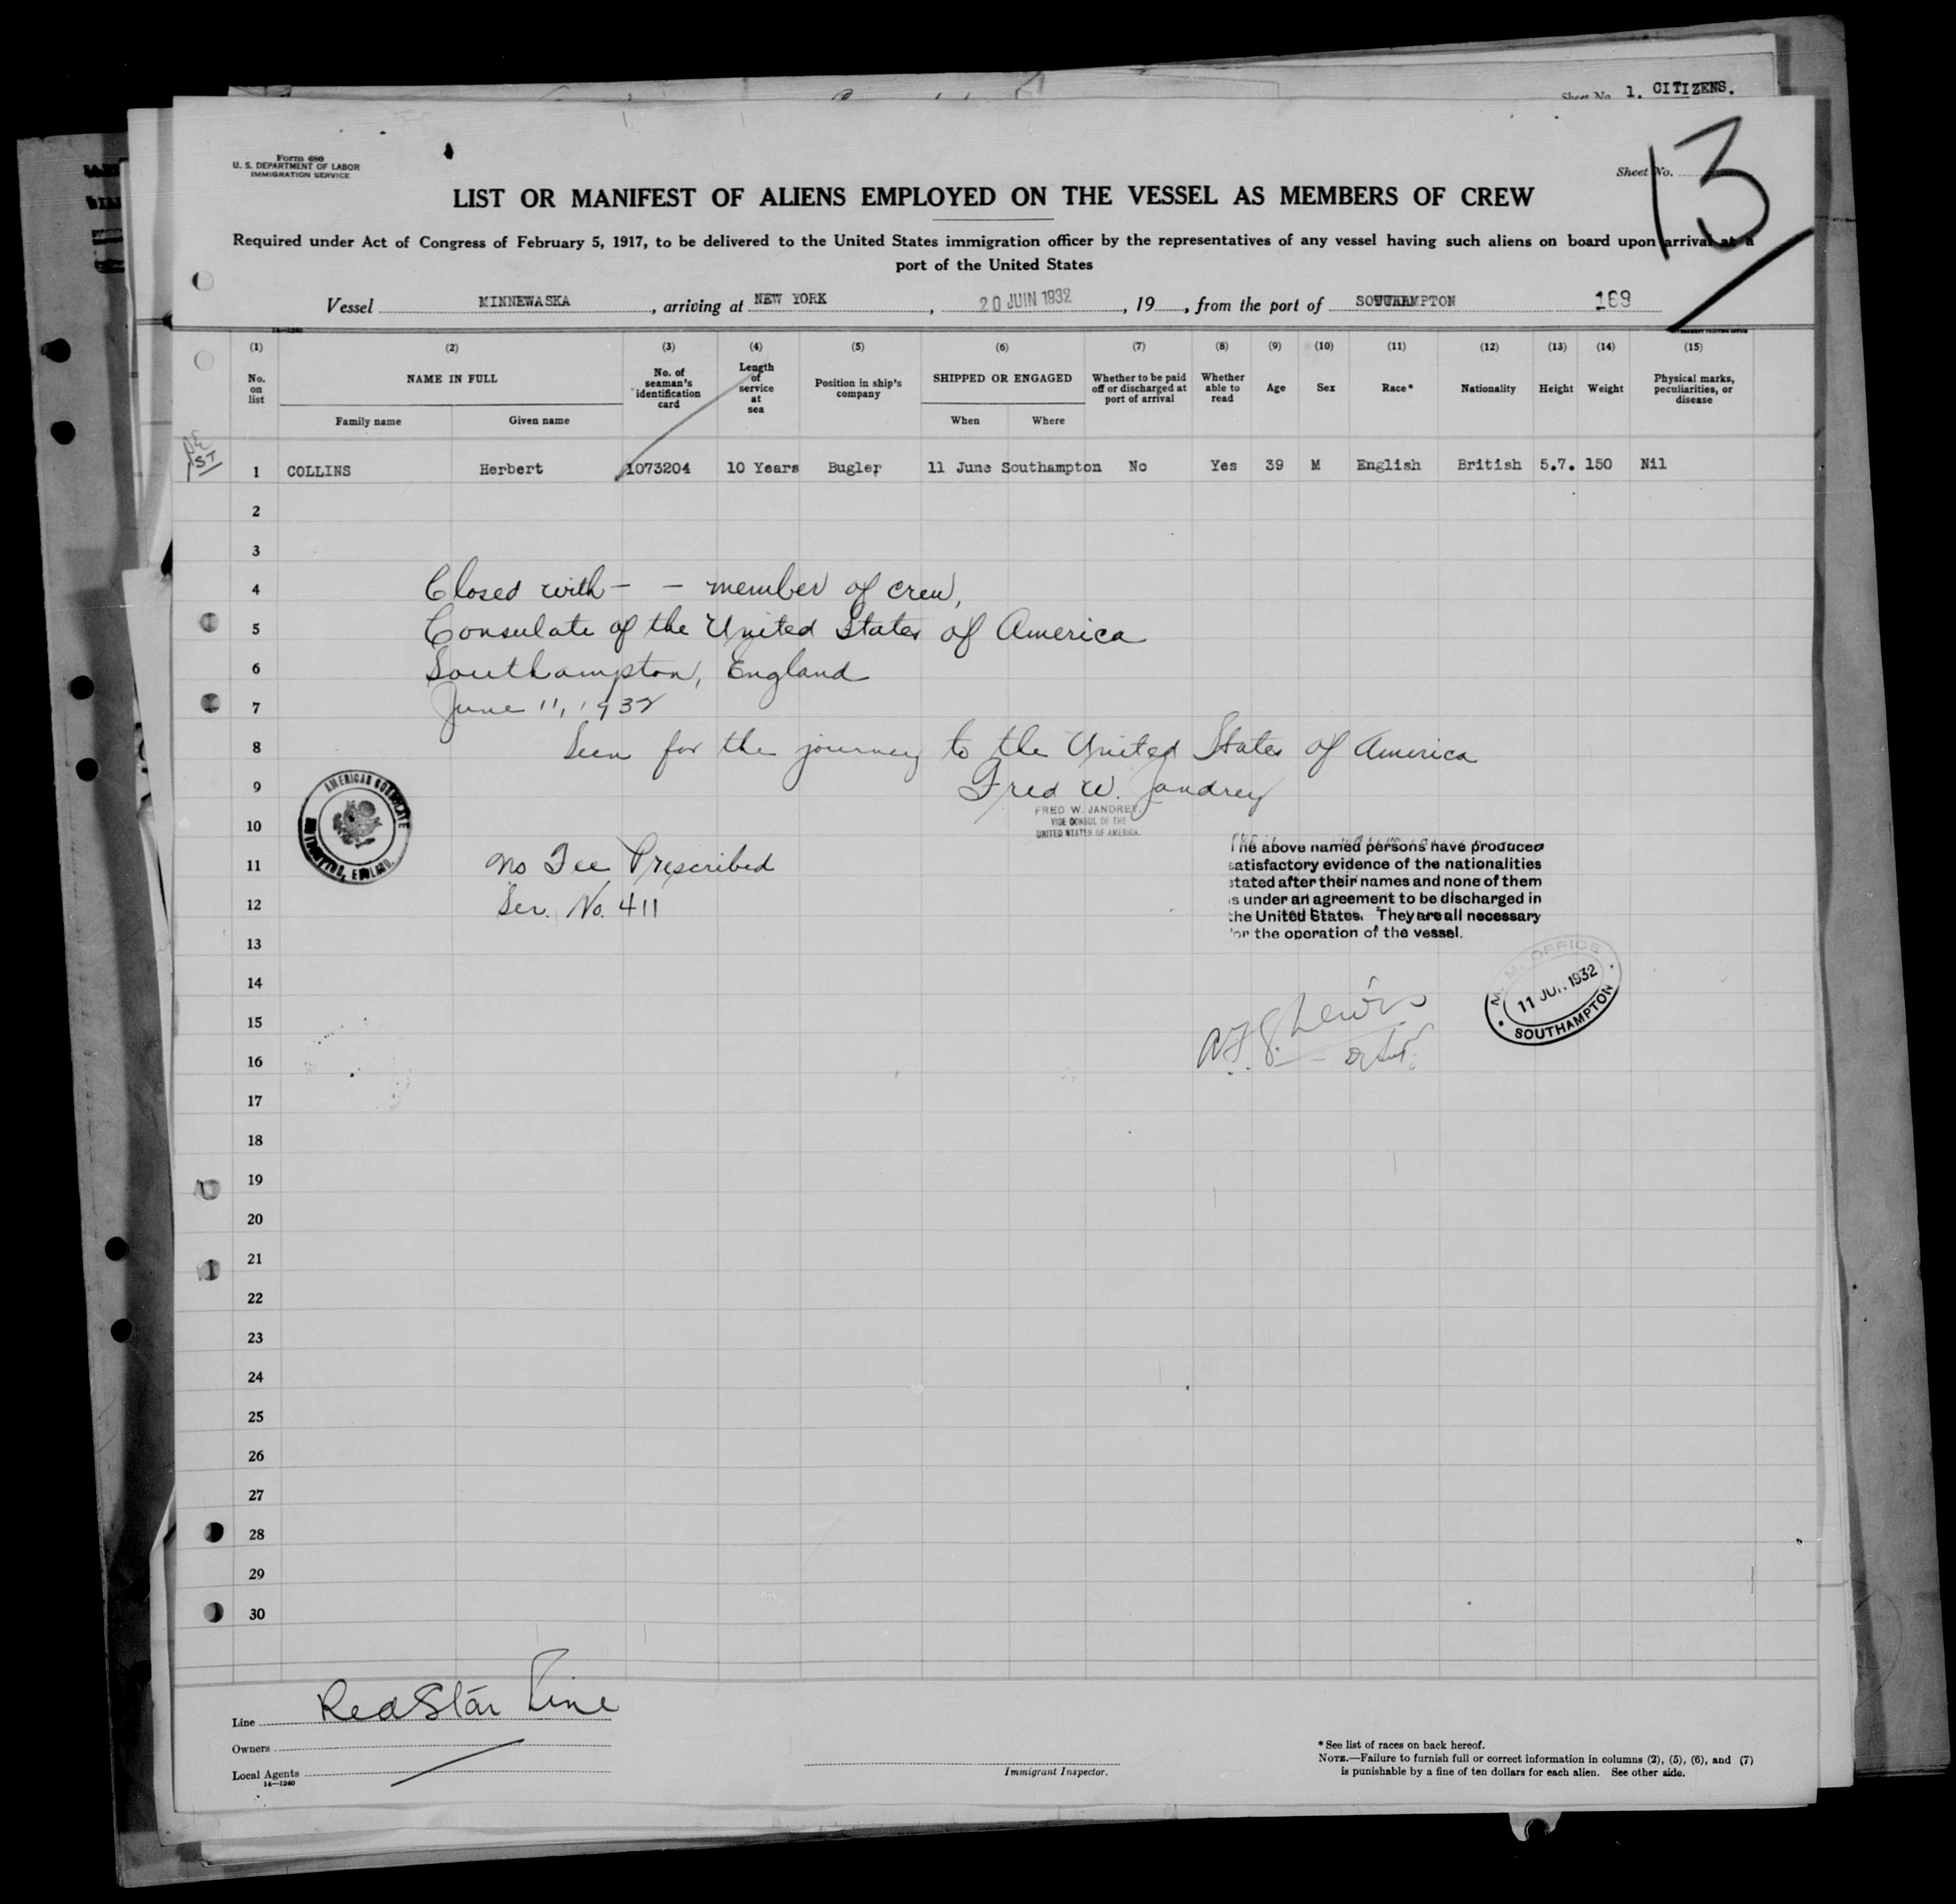 Sheet No. 1. CITIZENS.
Form 680
U. S. DEPARTMENT OF LABOR
IMMIGRATION SERVICE
Sheet No.
13
LIST OR MANIFEST OF ALIENS EMPLOYED ON THE VESSEL AS MEMBERS OF CREW
Required under Act of Congress of February 5, 1917, to be delivered to the United States immigration officer by the representatives of any vessel having such aliens on board upon arrival at a
port of the United States
Vessel MINNEWASKA, arriving at NEW YORK, 20 JUIN 1932, 19, from the port of SOUTHAMPTON 169
(1) (2) (3) (4) (5) (6) (7) (8) (9) (10) (11) (12) (13) (14) (15)
No. on list NAME IN FULL No. of seaman's identification card Length of service at sea Position in ship's company SHIPPED OR ENGAGED Whether to be paid off or discharged at port of arrival Whether able to read Age Sex Race* Nationality Height Weight Physical marks, peculiarities, or disease
Family name Given name When Where
1 COLLINS Herbert 1073204 10 Years Bugler 11 June Southampton No Yes 39 M English British 5.7. 150 Nil
2
3
4 Closed with - - member of crew,
5 Consulate of the United States of America
6 Southampton, England
7 June 11, 1932
8 Seen for the journey to the United States of America
9 Fred W. Jandrey
FRED W. JANDREY.
VICE CONSUL OF THE
UNITED STATES OF AMERICA.
AMERICAN CONSULATE
10
The above named persons have produced
11 No Fee Prescribed
satisfactory evidence of the nationalities
stated after their names and none of them
12 Ser. No. 411
is under an agreement to be discharged in
the United States. They are all necessary
for the operation of the vessel.
13
14
M. M. OFFICE
11 JUN 1932
SOUTHAMPTON
15
Lewis
16
17
18
19
20
21
22
23
24
25
26
27
28
29
30
Line Red Star Line
Owners
Local Agents
14—1240
Immigrant Inspector.
* See list of races on back hereof.
NOTE.—Failure to furnish full or correct information in columns (2), (5), (6), and (7)
is punishable by a fine of ten dollars for each alien. See other side.